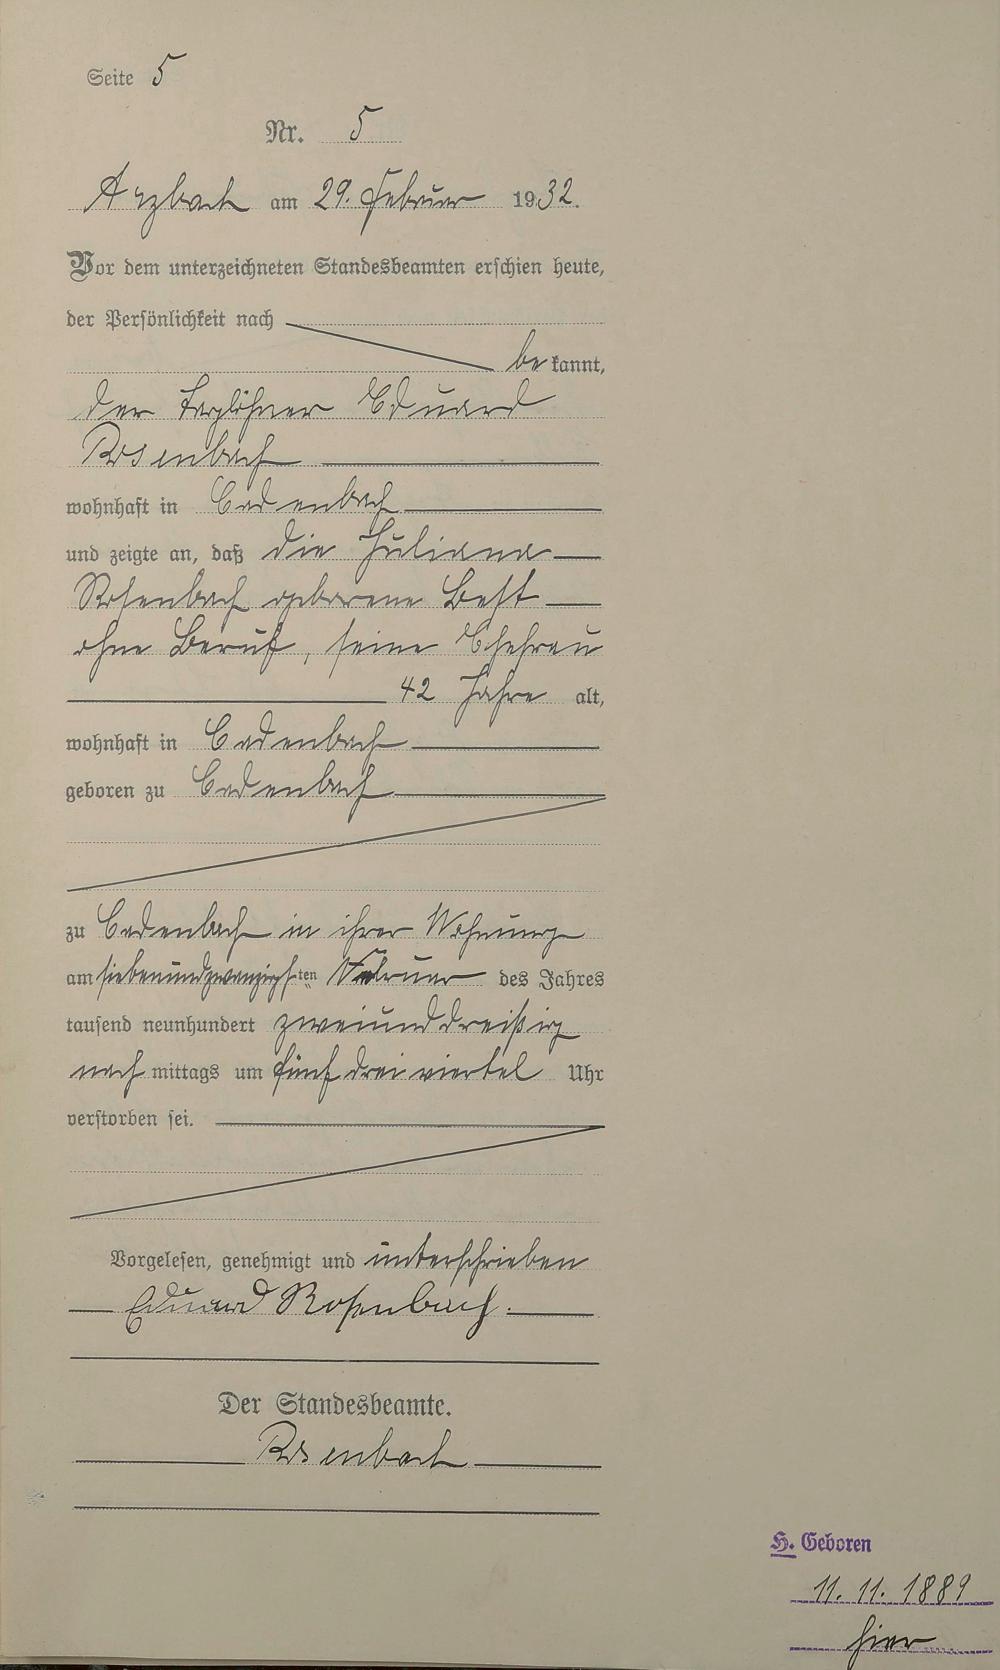 Seite 5
Nr. 5
Arzbach am 29. Februar 1932.
Vor dem unterzeichneten Standesbeamten erschien heute,
der Persönlichkeit nach
be kannt,
der Taglöhner Eduard
Rosenbach
wohnhaft in Cadenbach
und zeigte an, daß die Juliana
Rosenbach geborene Best
ohne Beruf, seine Ehefrau
42 Jahre alt,
wohnhaft in Cadenbach
geboren zu Cadenbach
zu Cadenbach in ihrer Wohnung
am siebenundzwanzigsten Februar des Jahres
tausend neunhundert zweiunddreißig
nach mittags um fünf drei viertel Uhr
verstorben sei.
Vorgelesen, genehmigt und unterschrieben
Eduard Rosenbach.
Der Standesbeamte.
Rosenbach
H. Geboren
11. 11. 1889
hier